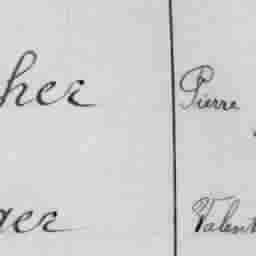 her Pierre
ger Valent